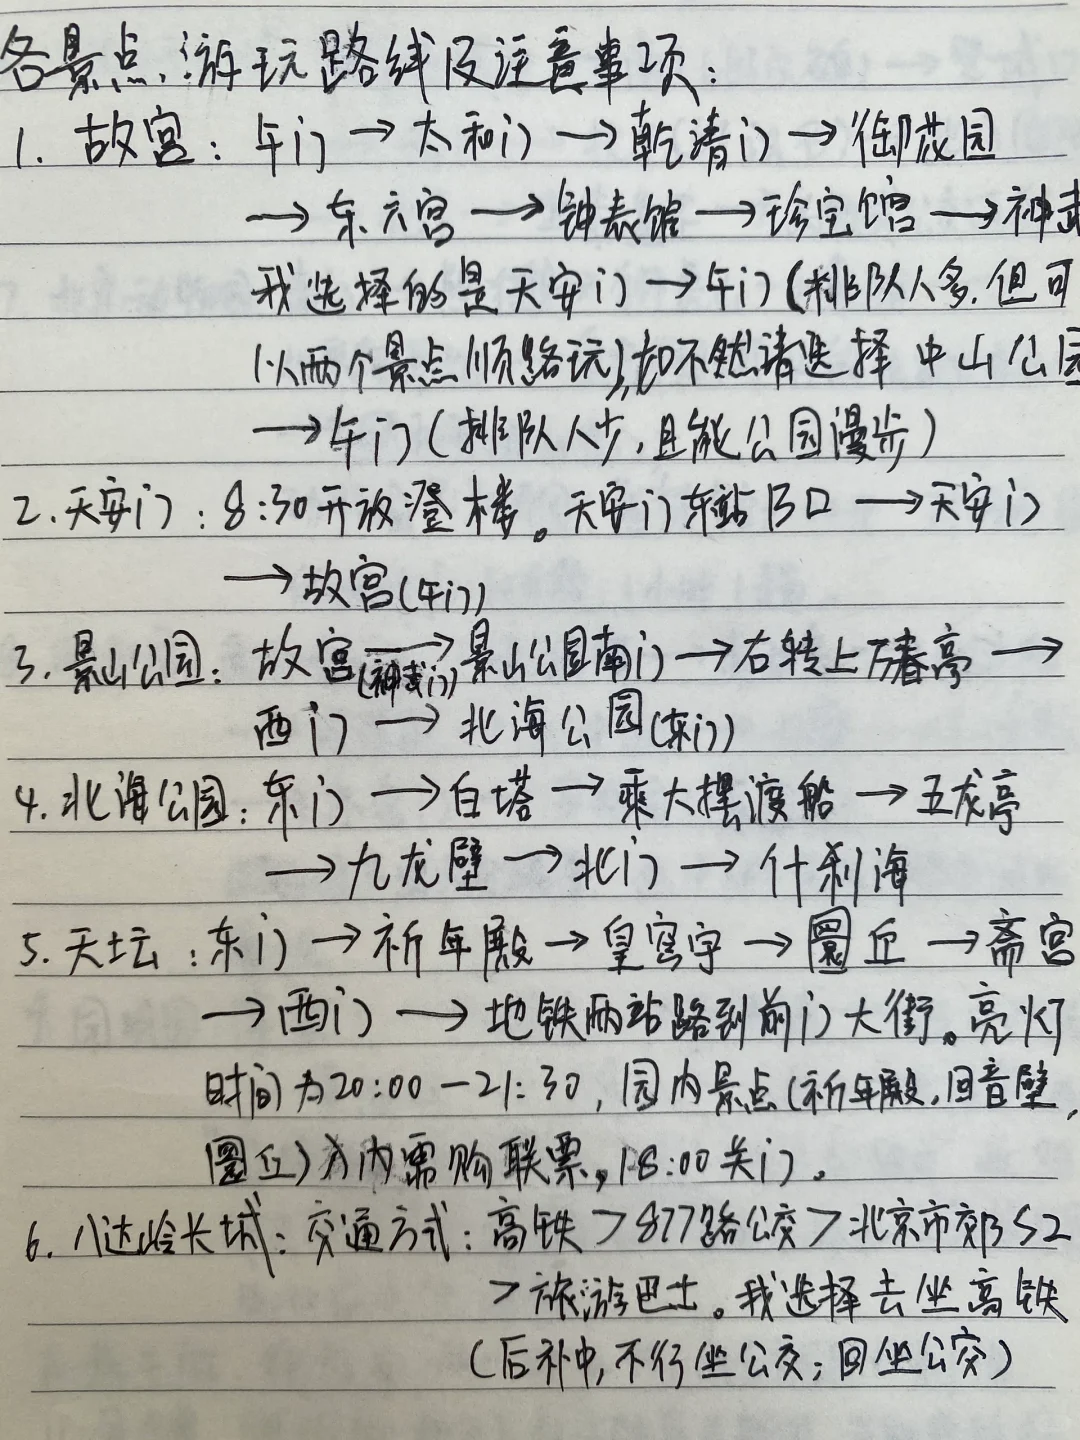 各景点游玩路线及注意事项：
1. 故宫：午门→太和门→乾清门→御花园
→东六宫→钟表馆→珍宝馆→神武
我选择的是天安门→午门(排队人多,但可
以两个景点顺路玩),如不然请选择中山公园
→午门(排队人少,且能公园漫步)
2.天安门：8:30开放登楼。天安门东站B口→天安门
→故宫(午门)
3.景山公园：故宫(神武门)→景山公园南门→右转上万春亭→
西门→北海公园(东门)
4.北海公园：东门→白塔→乘大摆渡船→五龙亭
→九龙壁→北门→什刹海
5.天坛：东门→祈年殿→皇穹宇→圜丘→斋宫
→西门→地铁两站路到前门大街。亮灯
时间为20:00-21:30,园内景点(祈年殿,回音壁,
圜丘)入内需购联票,18:00关门。
6.八达岭长城：交通方式：高铁>877路公交>北京市郊S2
>旅游巴士。我选择去坐高铁
(后补中,不行坐公交；回坐公交)